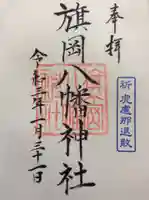 奉拝
旗岡八幡神社
令和三年一月三十一日
祈 虎慮那退散